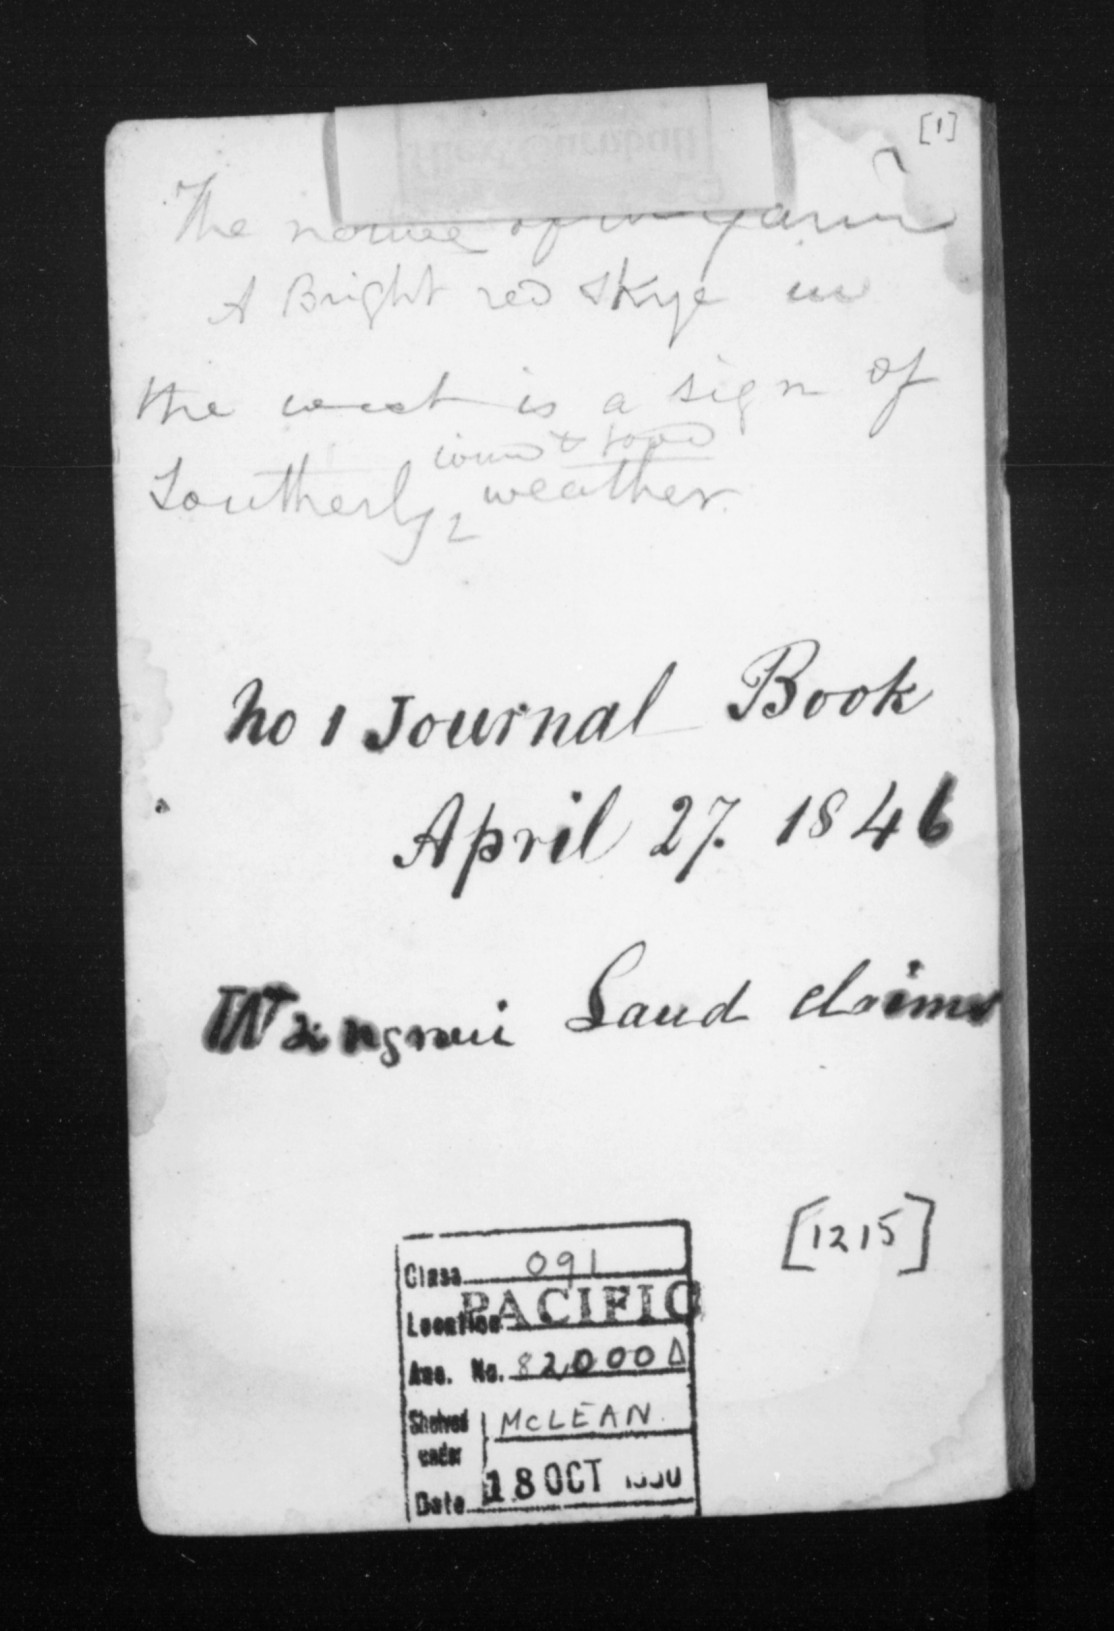 [1]
The of
A Bright red Skye in
the west is a sign of
wind &
Southerly 2 weather.
No 1 Journal Book
April 27. 1846
Land claims
[1215]
Class 091
Location PACIFIC
Acc. No. 82,000 Δ
Shelved under McLEAN
Date 18 OCT